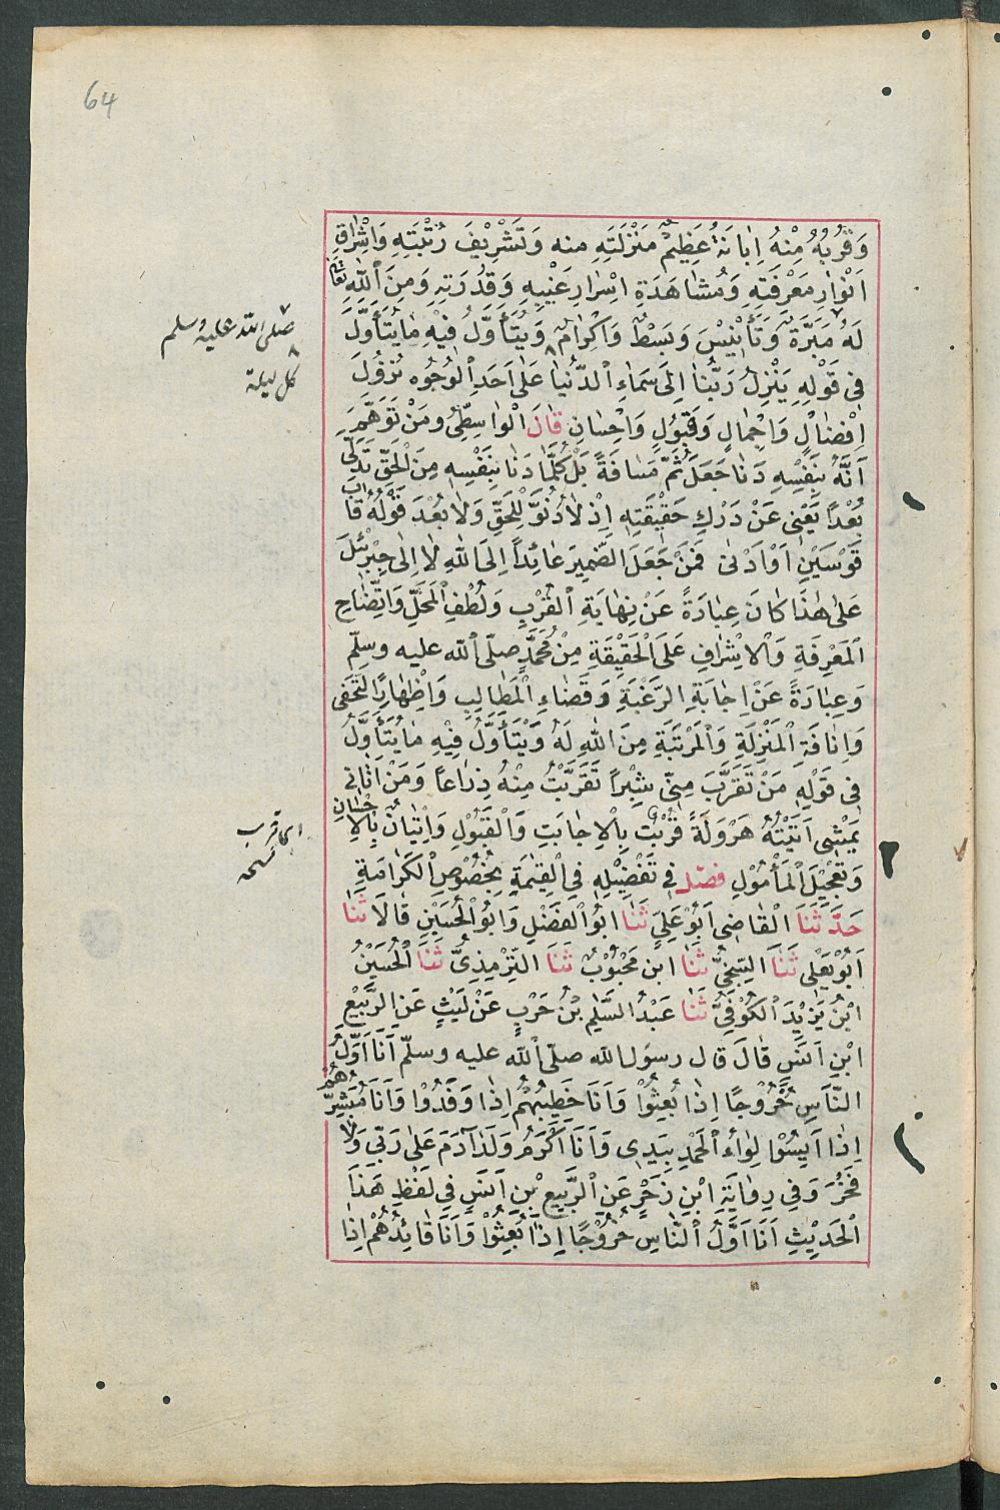 64
وَقُرْبُهُ مِنْهُ اِبَانَةُ عَظِيْمِ مَنْزِلَتِهِ منه وَتَشْرِيْفِ رُتْبَتِهِ وَاِشْرَاقِ
اَنْوَارِ مَعْرِفَتِهِ وَمُشَاهَدَةِ اَسْرَارِ غَيْبِهِ وَقُدْرَتِهِ وَمِنَ اللهِ تعالى
لَهُ مَبَرَّةٌ وَتَأْنِيْسٌ وَبَسْطٌ وَاِكْرَامٌ وَيُتَأَوَّلُ فِيْهِ مَا يُتَأَوَّلُ
صلى الله عليه وسلم
فِى قَوْلِهِ يَنْزِلُ رَبُّنَا اِلَى سَمَاءِ الدُّنْيَا عَلَى اَحَدِ الْوُجُوهِ نُزُوْلُ
كل ليلة
اِفْضَالٍ وَاِجْمَالٍ وَقَبُوْلٍ وَاِحْسَانٍ قَالَ الْوَاسِطِىُّ وَمَنْ تَوَهَّمَ
اَنَّهُ بِنَفْسِهِ دَنَا جَعَلَ ثَمَّ مَسَافَةً بَلْ كُلَّمَا دَنَا بِنَفْسِهِ مِنَ الْحَقِّ تَدَلَّى
بُعْدًا يَعْنِى عَنْ دَرْكِ حَقِيْقَتِهِ اِذْ لَا دُنُوَّ لِلْحَقِّ وَلَا بُعْدَ قَوْلُهُ قَابَ
قَوْسَيْنِ اَوْ اَدْنٰى فَمَنْ جَعَلَ الضَّمِيرَ عَائِدًا اِلَى اللهِ لَا اِلٰى جِبْرِئْلَ
عَلٰى هٰذَا كَانَ عِبَادَةً عَنْ نِهَايَةِ الْقُرْبِ وَلُطْفِ الْمَحَلِّ وَاِيْضَاحِ
الْمَعْرِفَةِ وَالْاِشْرَافِ عَلَى الْحَقِيْقَةِ مِنْ مُحَمَّدٍ صلّى الله عليه وسلّم
وَعِبَادَةً عَنْ اِجَابَةِ الرَّغْبَةِ وَقَضَاءِ الْمَطَالِبِ وَاِظْهَارِ التَّحَفِّى
وَاِنَافَةِ الْمَنْزِلَةِ وَالْمَرْتَبَةِ مِنَ اللهِ لَهُ وَيُتَأَوَّلُ فِيْهِ مَا يُتَأَوَّلُ
فِى قَوْلِهِ مَنْ تَقَرَّبَ مِنِّى شِبْرًا تَقَرَّبْتُ مِنْهُ ذِرَاعًا وَمَنْ اَتَانِى
يَمْشِى اَتَيْتُهُ هَرْوَلَةً قُرْبٌ بِالْاِجَابَتِ وَالْقَبُوْلِ وَاِتْيَانٌ بِالْاِحْسَانِ
وَتَعْجِيْلِ الْمَأْمُوْلِ فصل فِى تَفْضِيْلِهِ فِى الْقِيٰمَةِ بِخُصُوْصِ الْكَرَامَةِ
حَدَّثَنَا الْقَاضِى اَبُوْ عَلِيٍّ ثَنَا اَبُو الْفَضْلِ وَاَبُو الْحُسَيْنِ قَالَا ثَنَا
اَبُوْ يَعْلٰى ثَنَا السِّنْجِيُّ ثَنَا ابن مَحْبُوْبٍ ثَنَا التِّرْمِذِىُّ ثَنَا الْحُسَيْنُ
ابْنُ يَزِيْدَ الْكُوْفِيُّ ثَنَا عَبْدُ السَّلٰمِ بْنُ حَرْبٍ عَنْ لَيْثٍ عَنِ الرَّبِيْعِ
ابْنِ اَنَسٍ قَالَ قال رسول الله صلّى الله عليه وسلّم اَنَا اَوَّلُ
النَّاسِ خُرُوْجًا اِذَا بُعِثُوْا وَاَنَا خَطِيْبُهُمْ اِذَا وَفَدُوْا وَاَنَا مُبَشِّرُهُمْ
اِذَا اَيِسُوْا لِوَاءُ الْحَمْدِ بِيَدِى وَاَنَا اَكْرَمُ وَلَدِ آدَمَ عَلٰى رَبِّى وَلَا
فَخْرَ وَفِى رِوَايَةِ ابْنِ زَحْرٍ عَنِ الرَّبِيعِ بْنِ اَنَسٍ فِى لَفْظِ هَذَا
الْحَدِيْثِ اَنَا اَوَّلُ النَّاسِ خُرُوْجًا اِذَا بُعِثُوْا وَاَنَا قَائِدُهُمْ اِذَا